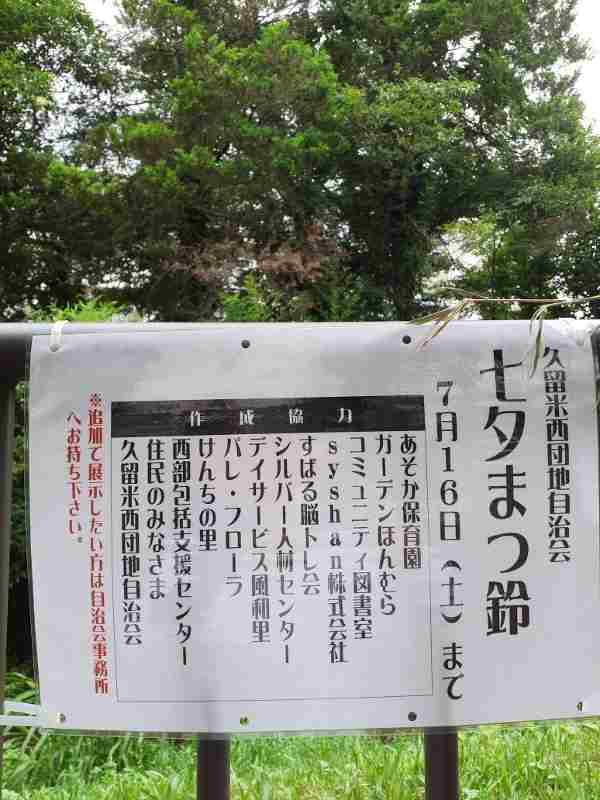 久留米西団地自治会
七夕まつ鈴
7月16日（土）まで
作成協力
あそか保育園
ガーデンほんむら
コミュニティ図書室
syshan株式会社
すばる脳トレ会
シルバー人材センター
デイサービス風和里
パレ・フローラ
けんちの里
西部包括支援センター
住民のみなさま
久留米西団地自治会
※追加で展示したい方は自治会事務所
へお持ち下さい。